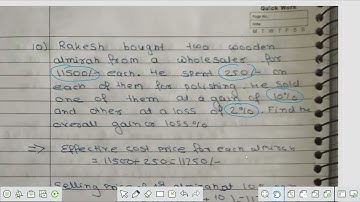 Quick Work
Page No.
Date
M T W T F S S
10) Rakesh bought two wooden
almirah from a wholesaler for
11500/- each. He spent 250/- on
each of them for polishing. He sold
one of them at a gain of 10%
and other at a loss of 2%. Find the
overall gain or loss%
⇒ Effective cost price for each almirah
= 11500+250=11750/-